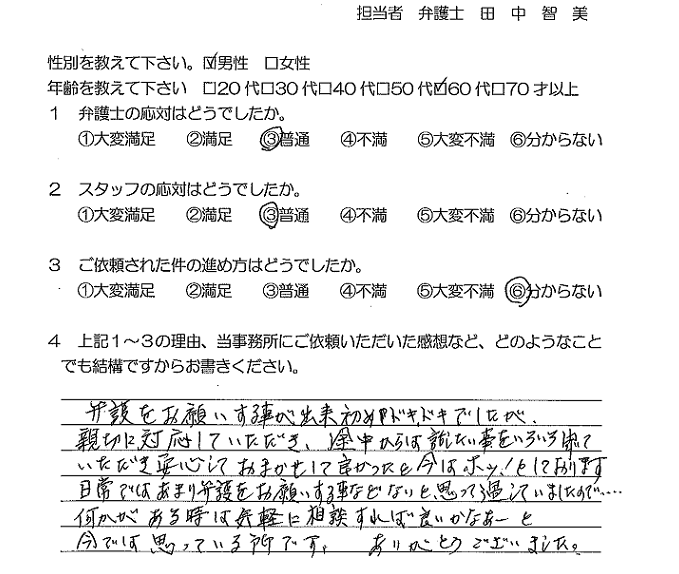 担当者 弁護士 田 中 智 美
性別を教えて下さい。☑男性 □女性
年齢を教えて下さい □20代□30代□40代□50代☑60代□70才以上
1 弁護士の応対はどうでしたか。
①大変満足 ②満足 ③普通 ④不満 ⑤大変不満 ⑥分からない
2 スタッフの応対はどうでしたか。
①大変満足 ②満足 ③普通 ④不満 ⑤大変不満 ⑥分からない
3 ご依頼された件の進め方はどうでしたか。
①大変満足 ②満足 ③普通 ④不満 ⑤大変不満 ⑥分からない
4 上記1～3の理由、当事務所にご依頼いただいた感想など、どのようなこと
でも結構ですからお書きください。
弁護をお願いする事が出来初めドキドキでしたが、
親切に対応していただき、途中からは話したい事をいろいろ
いただき安心しておまかせして良かったと今はホッ!としております
日常ではあまり弁護をお願いする事などないと思って過していましたので……
何かがある時は気軽に相談すれば良いかなあーと
今では思っている所です。 ありがとうございました。